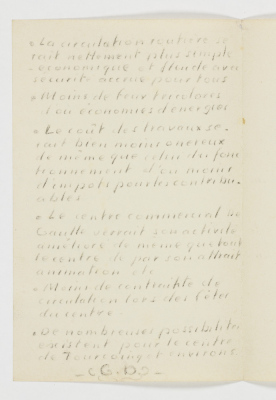 • La circulation routière se-
rait nettement plus simple
économique et fluide avec
sécurité accrue pour tous
• Moins de feux tricolores
d'où économies d'énergies
• Le coût des travaux se-
rait bien moins onéreux
de même que celui du fonc
tionnement d'où moins
d'impôts pour les contribu-
ables
• Le centre commercial de
Gaulle, verrait son activité
améliorée de même que tout
le centre de par son attrait
animation etc
• Moins de
circulation lors des fêtes
du centre.
• De nombreuses possibilités
existent pour le centre
de Tourcoing et environs